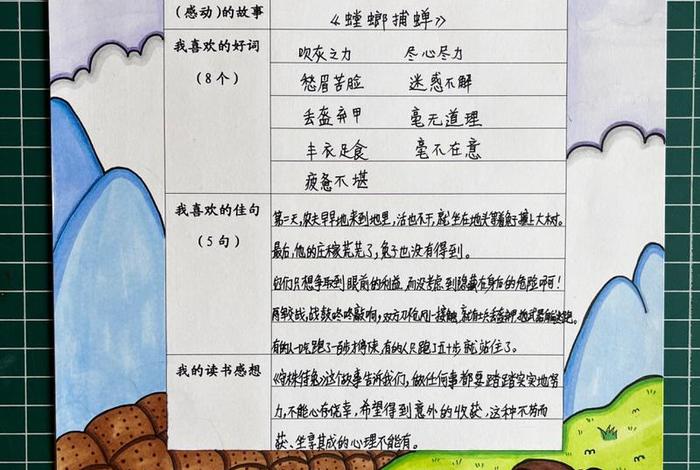 (感动)的故事
《螳螂捕蝉》
我喜欢的好词
(8个)
吹灰之力 尽心尽力
愁眉苦脸 迷惑不解
丢盔弃甲 毫无道理
丰衣足食 毫不在意
疲惫不堪
我喜欢的佳句
(5句)
第二天,农夫早早地来到地里,活也不干,就坐在地头等着兔子撞上大树。
最后,他的庄稼荒芜了,兔子也没有得到。
们只想争取到眼前的利益,而没考虑到隐藏在身后的危险啊!
两军交战,战鼓咚咚敲响,双方刀枪刚一接触,就有士兵丢盔弃甲,
有的人一口气跑了一百步才停下来,有的人只跑了五十步就站住了。
我的读书感想
《守株待兔》这个故事告诉我们,做任何事都要踏踏实实地努
力,不能心存侥幸,希望得到意外的收获,这种不劳而
获、坐享其成的心理不能有。